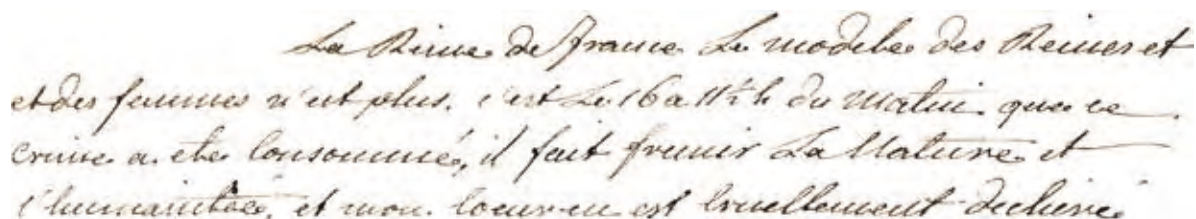 La Reine de france Le modele des Reines et
et des femmes n'est plus. c'est Le 16 a 11½ h du matin que ce
crime a ete Consommé, il fait fremir La Nature et
l'humanitée, et mon Coeur en est Cruellement dechiré